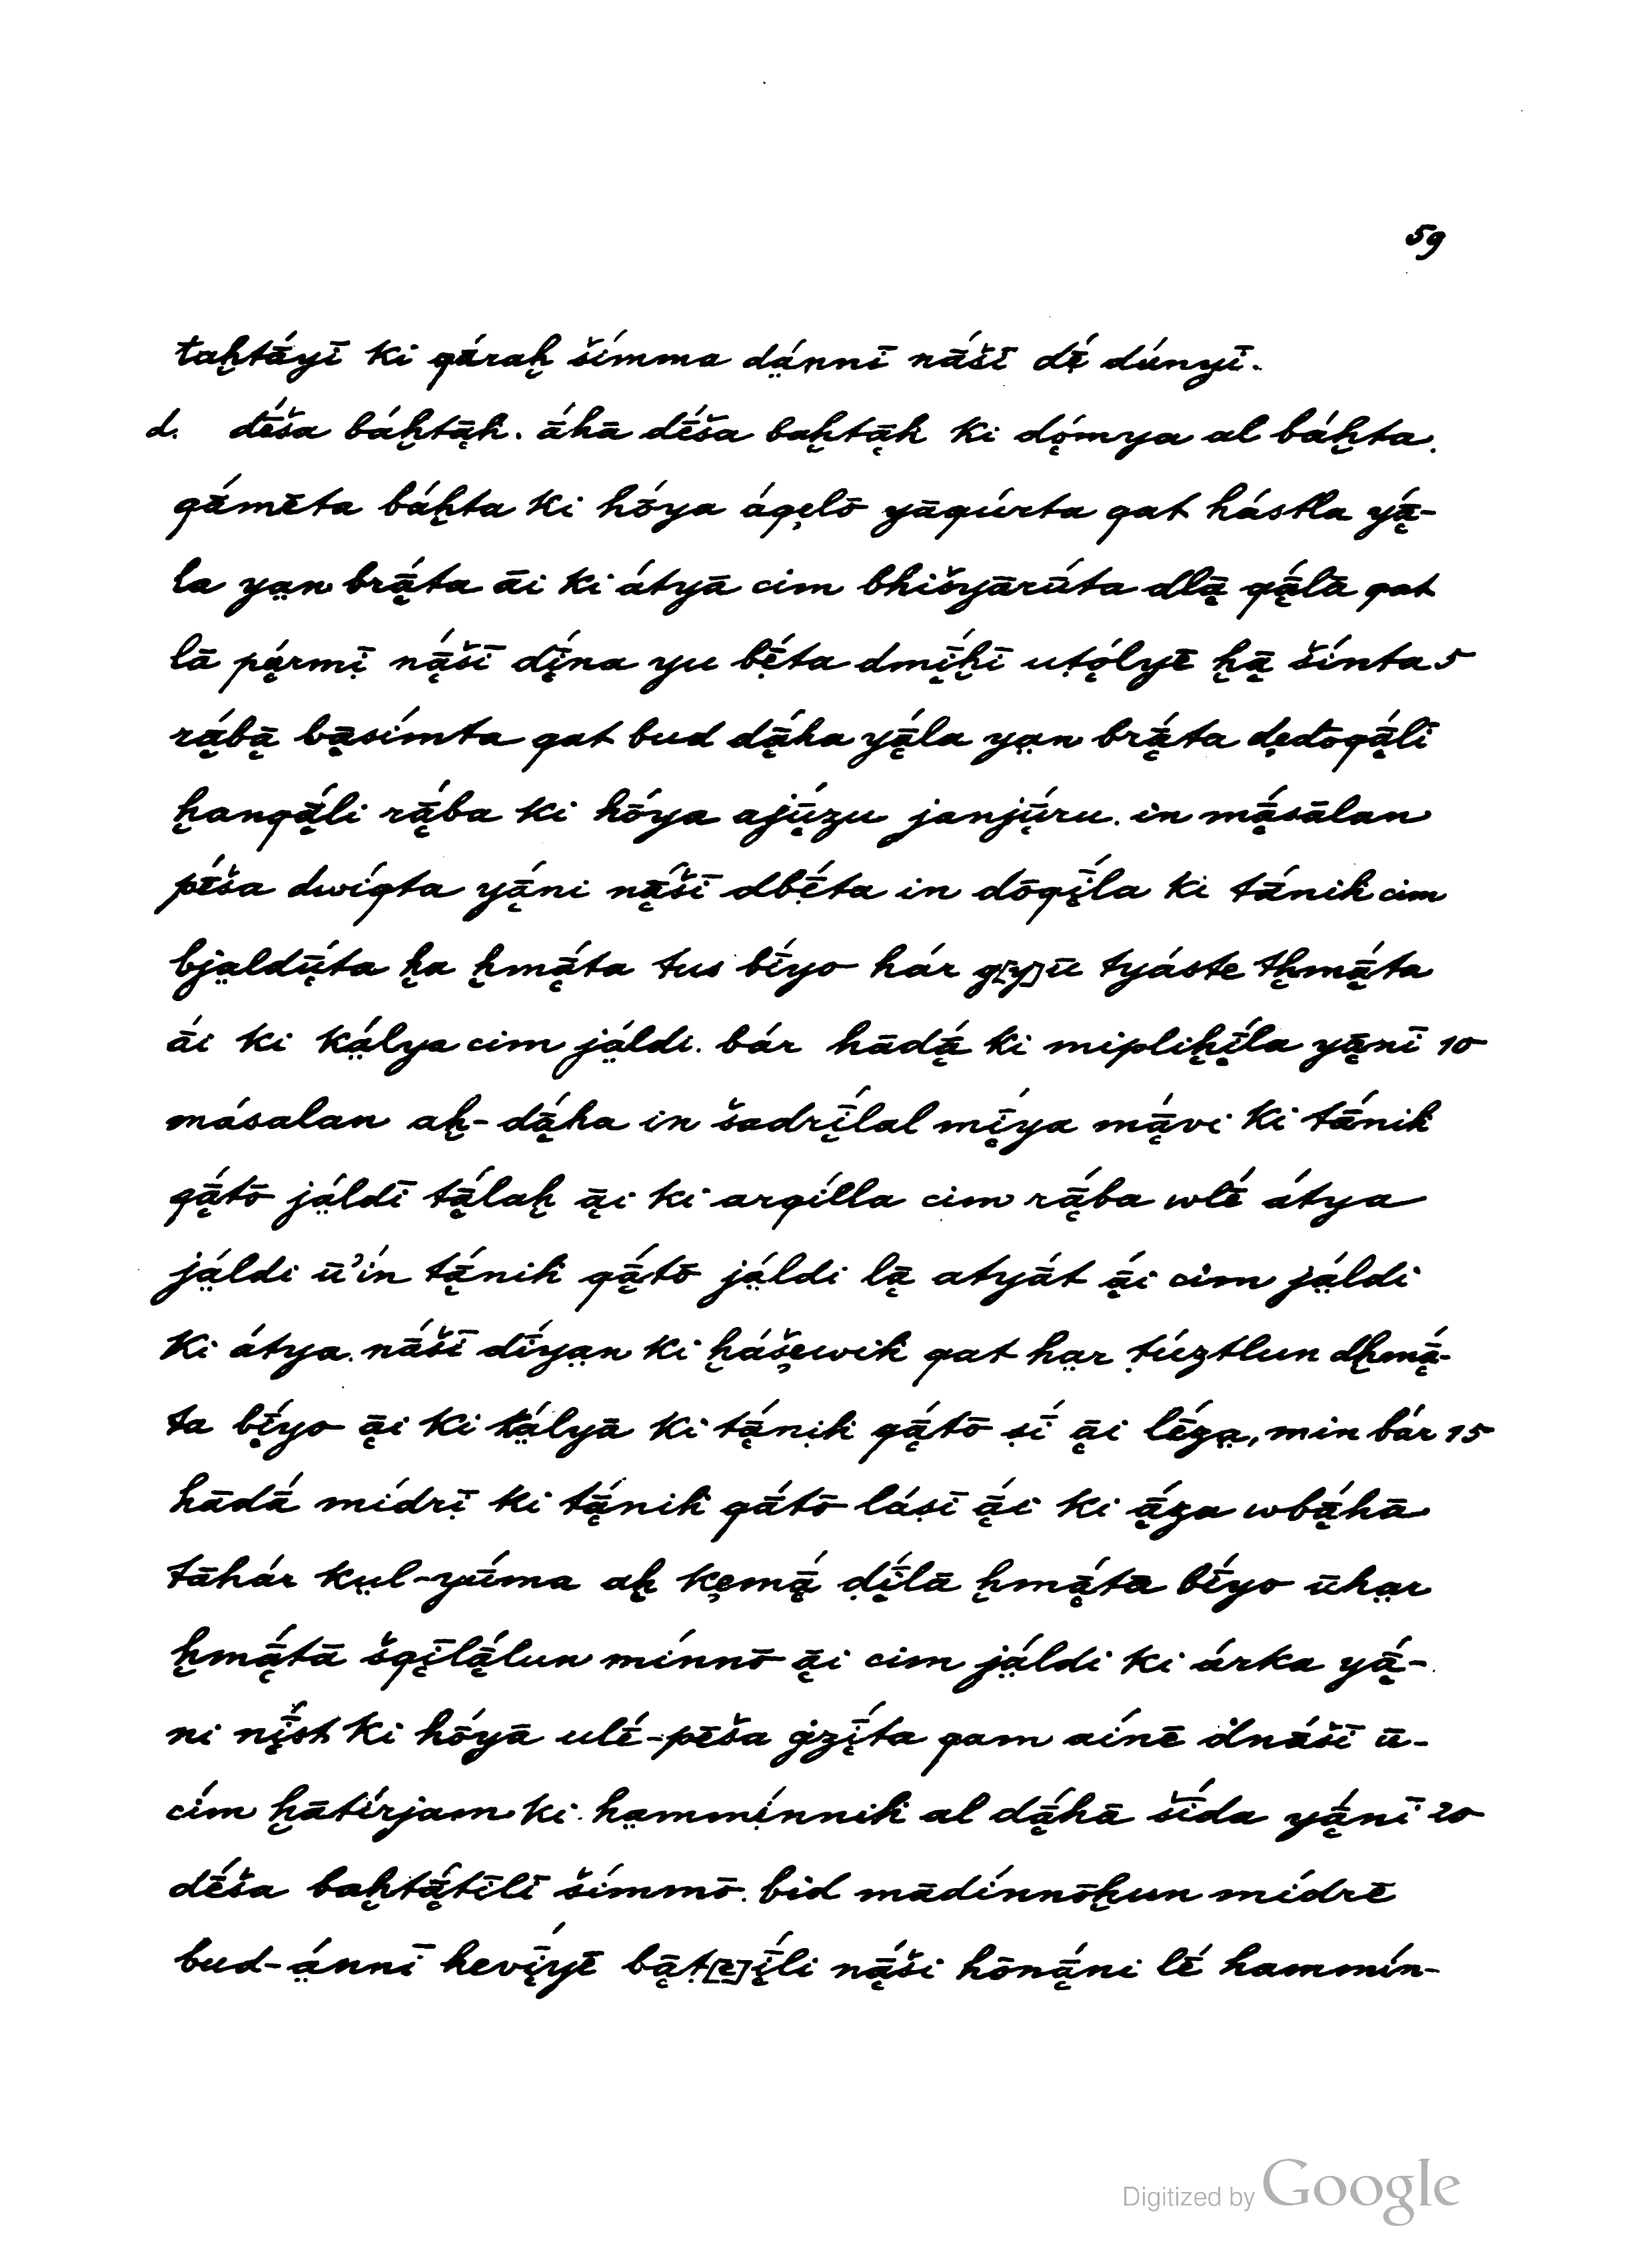 59
taḫtā́yī ki qā́raḫ šímma dä́nnī nā́šī dé̄ dúnyī.
d. dḗša báḫtāh. ā́hā dḗša baḫtāh ki dómya al báḫta.
qámēta báḫta ki hṓya áqelō yāqúrta qat hástla yā́-
la yan brā́ta āi ki átyā cim bhišyārū́ta dlā qā́lā qat
lā pármī nā́šī dī́na yu bḗta dmī́ḫī uṭólyē ḫā šínta 5
rā́bā bāsímta qat bud dā́ha yā́la yan brā́ta dedōqā́lī
ḫanqā́li rā́ba ki hṓya ajū́zu janjū́ru. in mā́sālan
pḗša dwíqta yā́ni nā́šī dbḗta in dōqī́la ki tā́nih cim
bjaldū́ta ḫa ḫmā́ta tus bī́yo hár g[y]ū tyáste tḫmā́ta
ā́i ki kä́lya cim jä́ldi. bár hādā́ ki mipliḫī́la yā́nī 10
másalan aḫ-dā́ha in šadrī́lal mī́ya mā́vi ki tā́nih
qā́tō jä́ldī tā́laḫ āi ki arqílla cim rā́ba wlḗ átya
jä́ldi ū'ín tā́nih qā́tō jä́ldi lā atyāt ā́i cim jä́ldi
ki átya. nā́šī dī́yan ki ḫášewih qat har ṭúztlun dḫmā́-
ta bī́yo āi ki kä́lyā ki tā́nih qā́tō sī́ āi lḗza, min bár 15
hādā́ mídrī ki tā́nih qā́tō lā́sī ā́i ki ā́za wbā́hā
tāhár kul-yū́ma aḫ kemā́ dī́lā ḫmā́ta bī́yo ūhar
ḫmā́tā šqīlā́lun mínnō āi cim jä́ldi ki árka yā́-
ni nī́št ki hṓyā ulḗ-pēša ġzī́ta qam aínē dnā́šī ū-
cím ḫātírjam ki hammínnih al dā́hā šī́da yā́nī 20
dḗša baḫtā́tīlī šímmō. bid mādínnōḫun mídrē
bud-ä́nnī hevī́yē bāṭ[e]ī́li nā́ši hōnā́ni lḗ hammín-
Digitized by Google